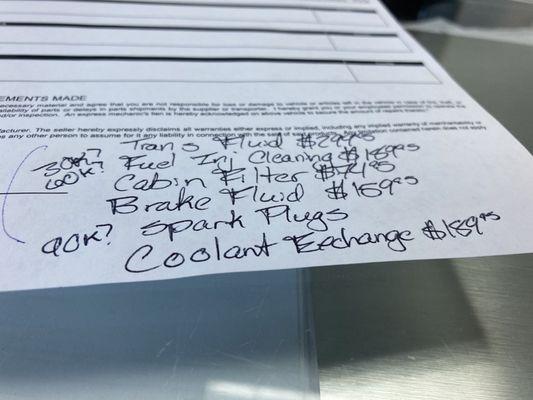 EMENTS MADE
necessary material and agree that you are not responsible for loss or damage to vehicle or articles left in the vehicle in case of fire, theft, or
availability of parts or delays in parts shipments by the supplier or transporter. I hereby grant you or your employees permission to operate the
nd/or inspection. An express mechanic's lien is hereby acknowledged on above vehicle to secure the amount of repairs thereto."
facturer. The seller hereby expressly disclaims all warranties either express or implied, including any implied warranty of merchantability or
es any other person to assume for it any liability in connection
Trans Fluid
30K? Fuel Inj Cleaning $189.95
60K? Cabin Filter $74.95
Brake Fluid $159.95
90K? Spark Plugs
Coolant Exchange $189.95